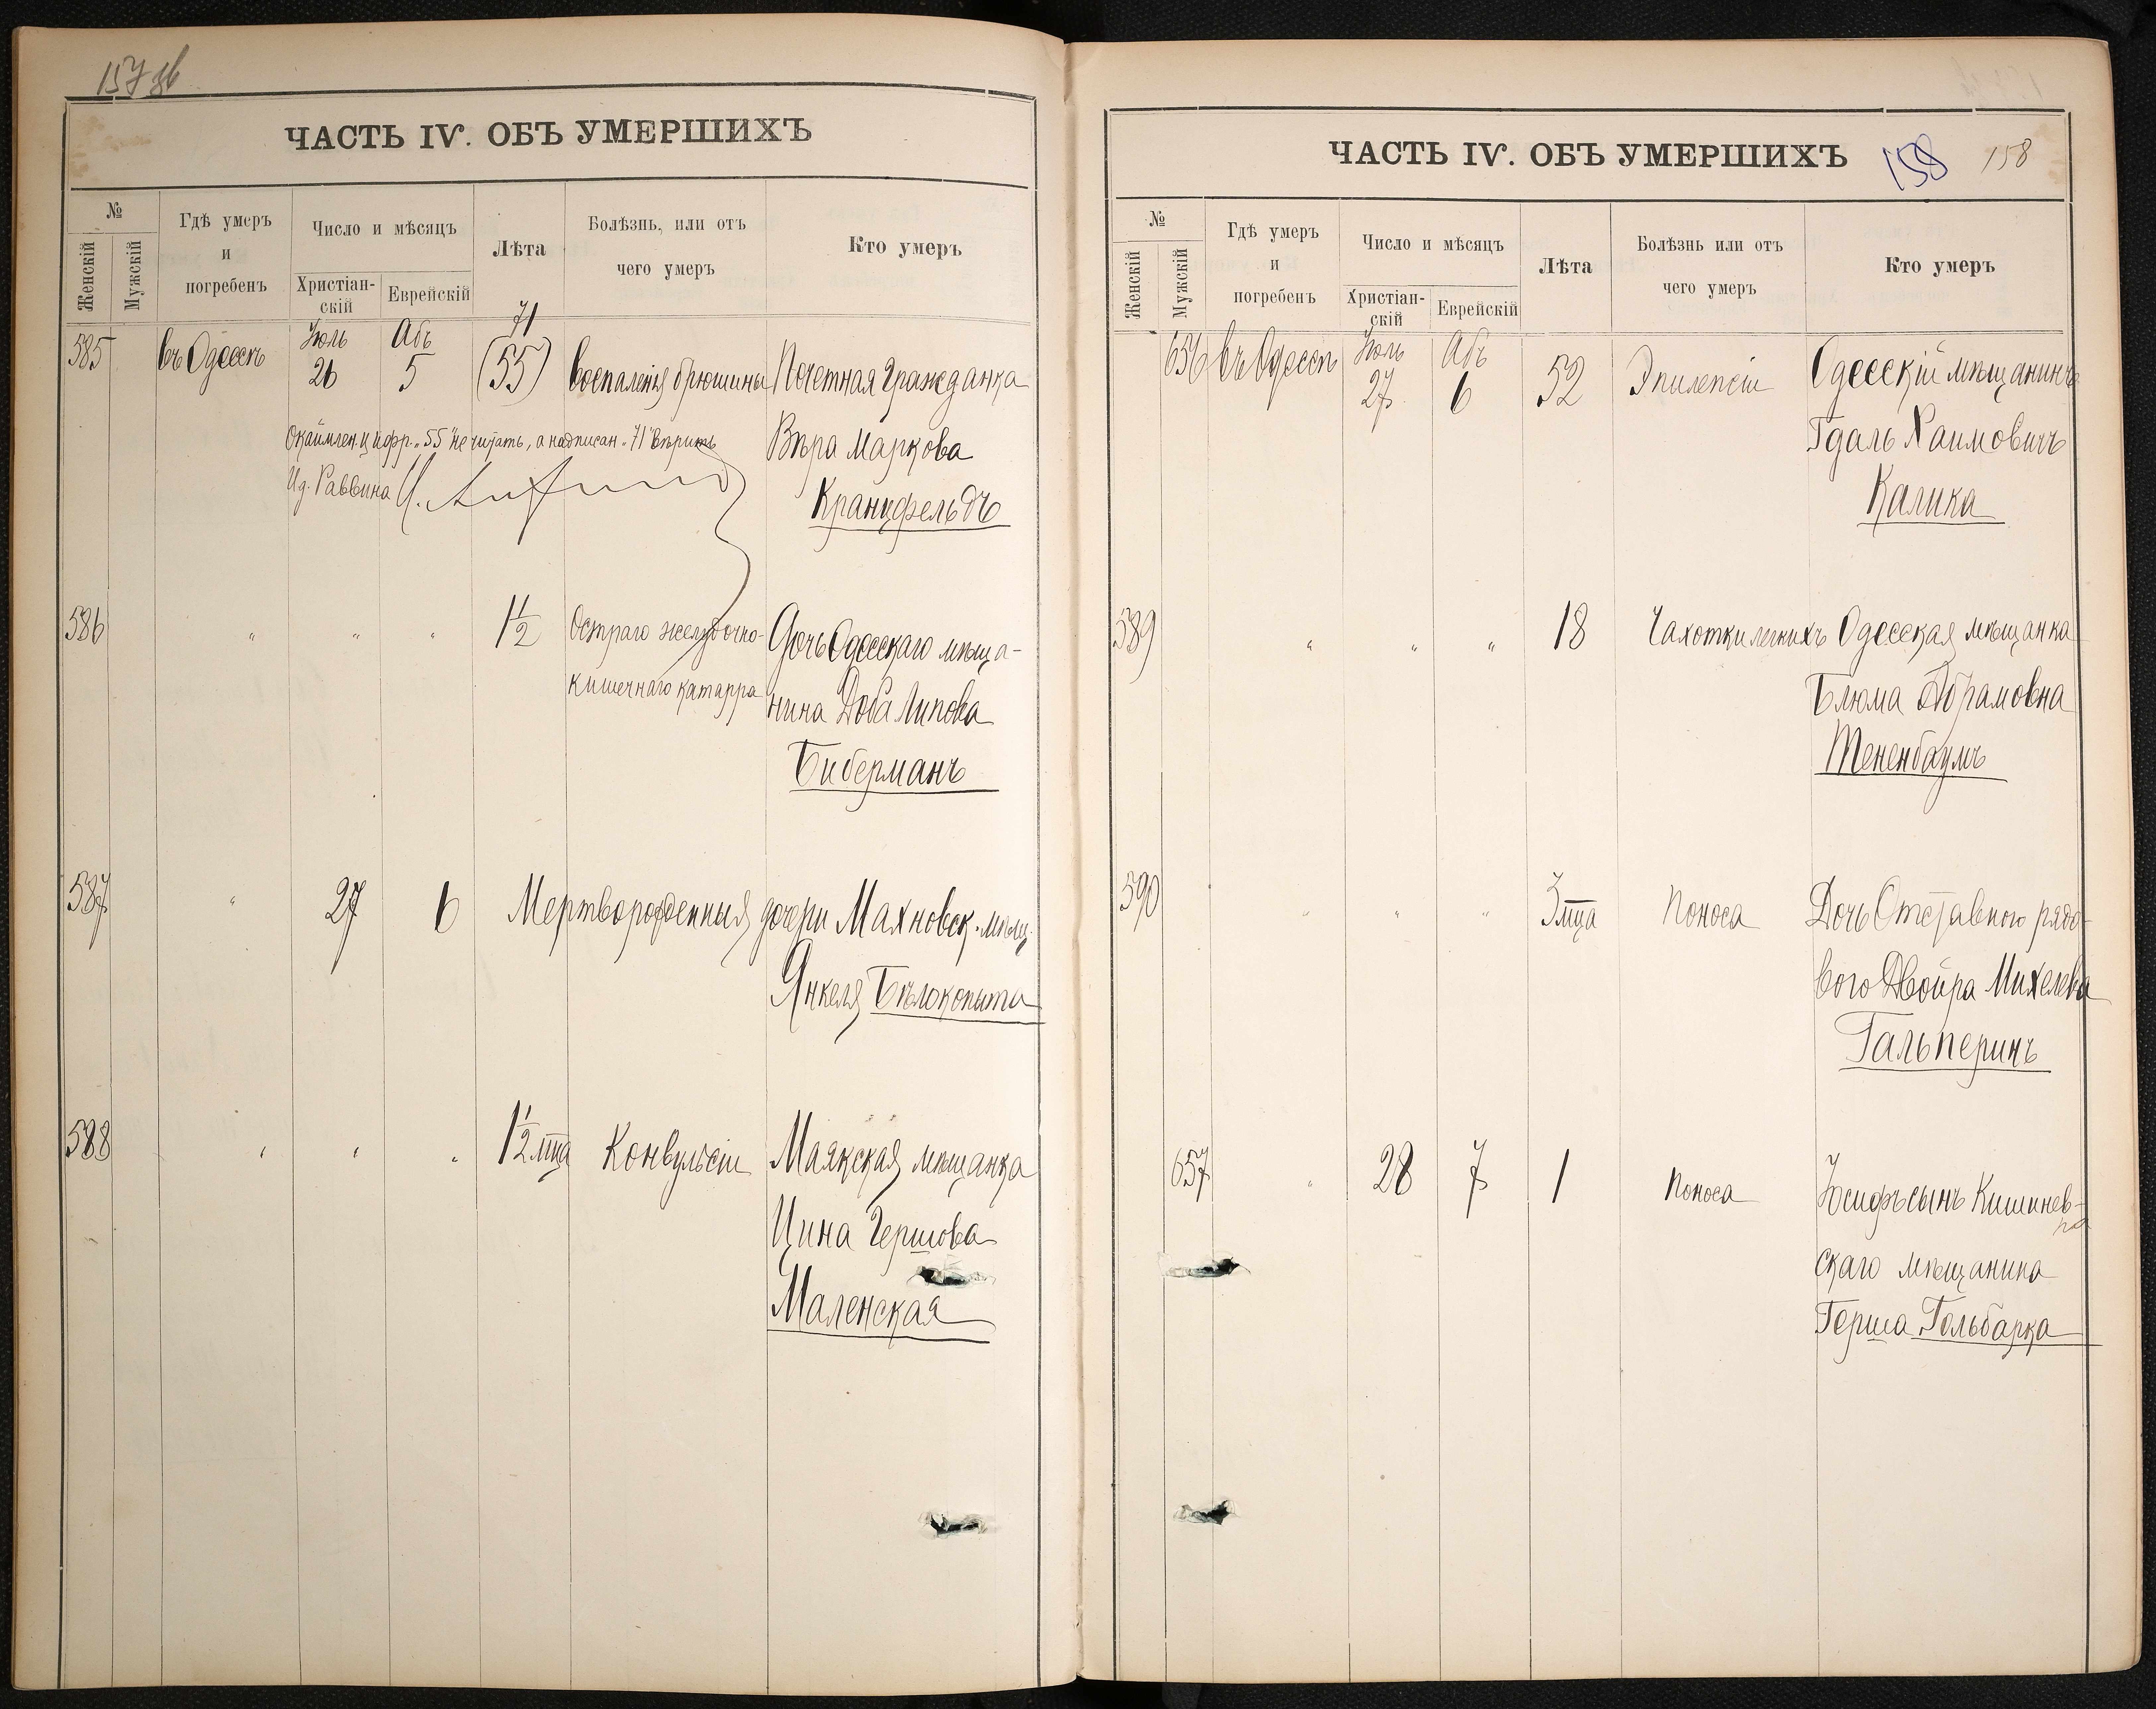 157 об
ЧАСТЬ IV. ОБЪ УМЕРШИХЪ
№
Женскій
Мужскій
Гдѣ умеръ
и
погребенъ
Число и мѣсяцъ
Христіан-
скій
Еврейскій
Лѣта
Болѣзнь, или отъ
чего умеръ
Кто умеръ
585 въ Одессѣ Іюль 26 Абъ 5 71 (55) Воспаленія брюшины Почетная Гражданка
Вѣра Маркова
Кранцфельдъ
Окаймлен. цифр. „55“ не читать, а надписан. „71“ вѣрить
Ид. Раввина
586 " " " 1½ Остраго желудочно- Дочь Одесскаго мѣща-
кишечнаго катарра нина Доба Липова
Биберманъ
587 " 27 6 Мертворожденныя дочери Махновск. мѣщ.
Янкеля Бѣлокопыта
588 " " " 1½ мца Конвульсіи Маякская мѣщанка
Цина Гершова
Маленская
ЧАСТЬ IV. ОБЪ УМЕРШИХЪ 158 158
№
Женскій
Мужскій
Гдѣ умеръ
и
погребенъ
Число и мѣсяцъ
Христіан-
скій
Еврейскій
Лѣта
Болѣзнь или отъ
чего умеръ
Кто умеръ
656 въ Одессѣ Іюль 27 Абъ 6 52 Эпилепсіи Одесскій мѣщанинъ
Гдаль Хаимовичъ
Калика
589 " " " 18 Чахотки легкихъ Одесская мѣщанка
Блюма Абрамовна
Тененбаумъ
590 " " " 3 мца Поноса Дочь Отставного рядо-
вого Двойра Михелева
Гальперинъ
657 " 28 7 1 Поноса Іосифъ сынъ Кишинев-
скаго мѣщанина
Герша Гольбарка